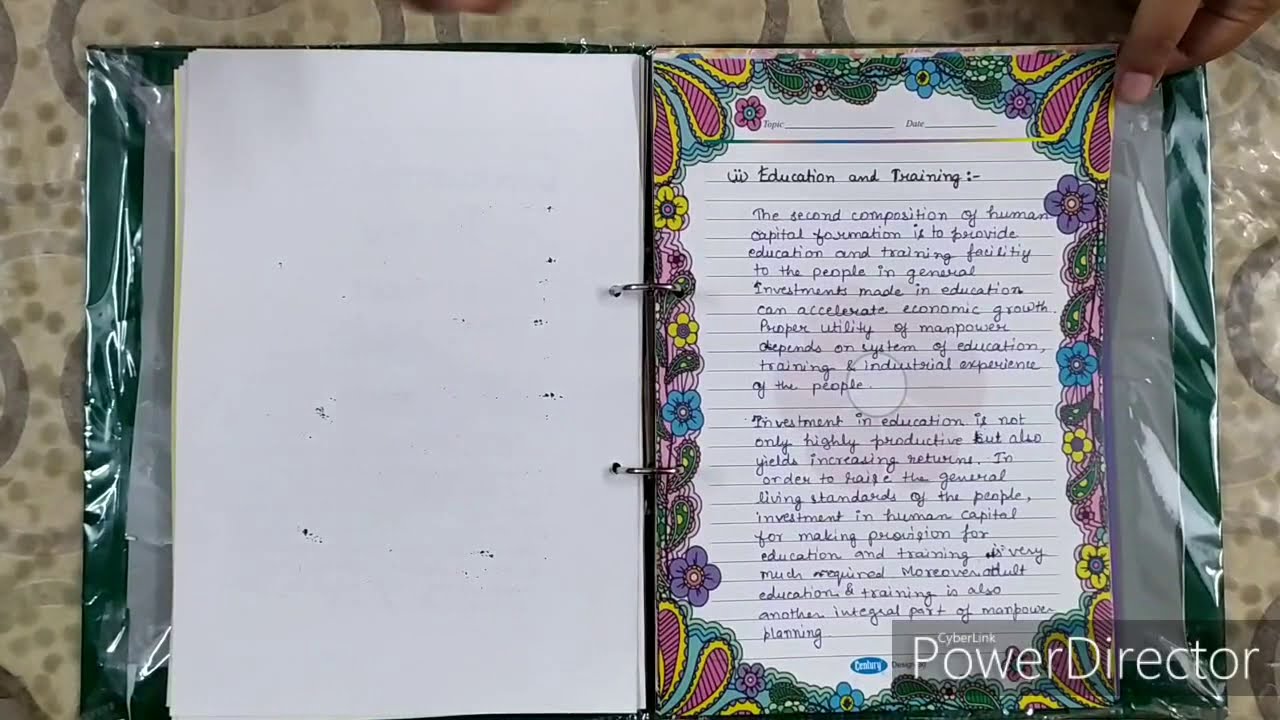 Topic Date
ii) Education and Training :-
The second composition of human
capital formation is to provide
education and training facilitiy
to the people in general
Investments made in education
can accelerate economic growth.
Proper utility of manpower
depends on system of education,
training & industrial experience
of the people.
Investment in education is not
only highly productive but also
yields increasing returns. In
order to raise the general
living standards of the people,
investment in human capital
for making provision for
education and training is very
much required Moreover adult
education & training is also
another integral part of manpower
planning
Century Design by
CyberLink
PowerDirector